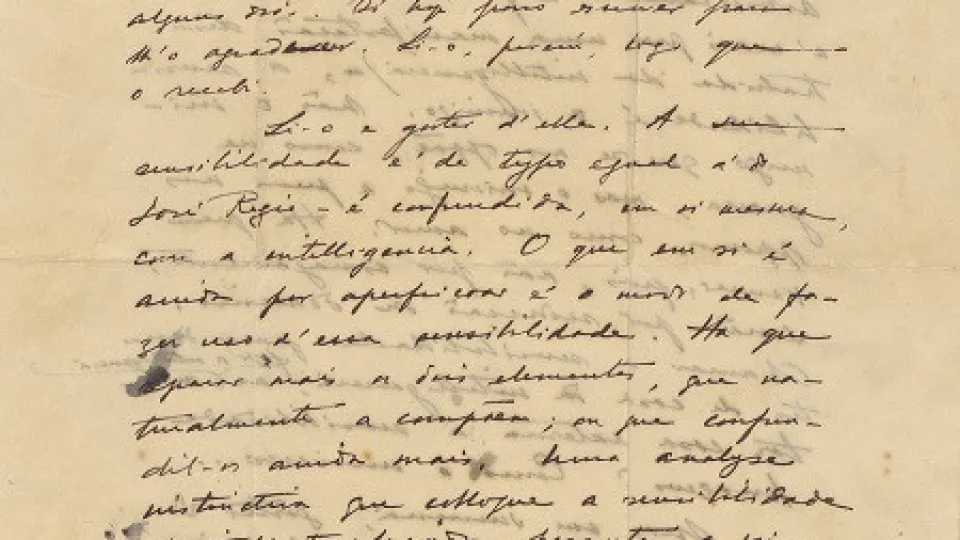 alguns dias. Só hoje posso escrever para
lh'o agradecer. Li-o, porém, logo que
o recebi.
Li-o e gostei d'elle. A sua
sensibilidade é de typo egual á do
José Regio - é confundida, em si mesma,
com a intelligencia. O que em si é
ainda por aperfeiçoar é o modo de fa-
zer uso d'essa sensibilidade. Ha que
separar mais os dois elementos, que na-
turalmente a compõem; ou que confun-
dil-os ainda mais. Uma analyse
instinctiva que colloque a sensibilidade
perante a